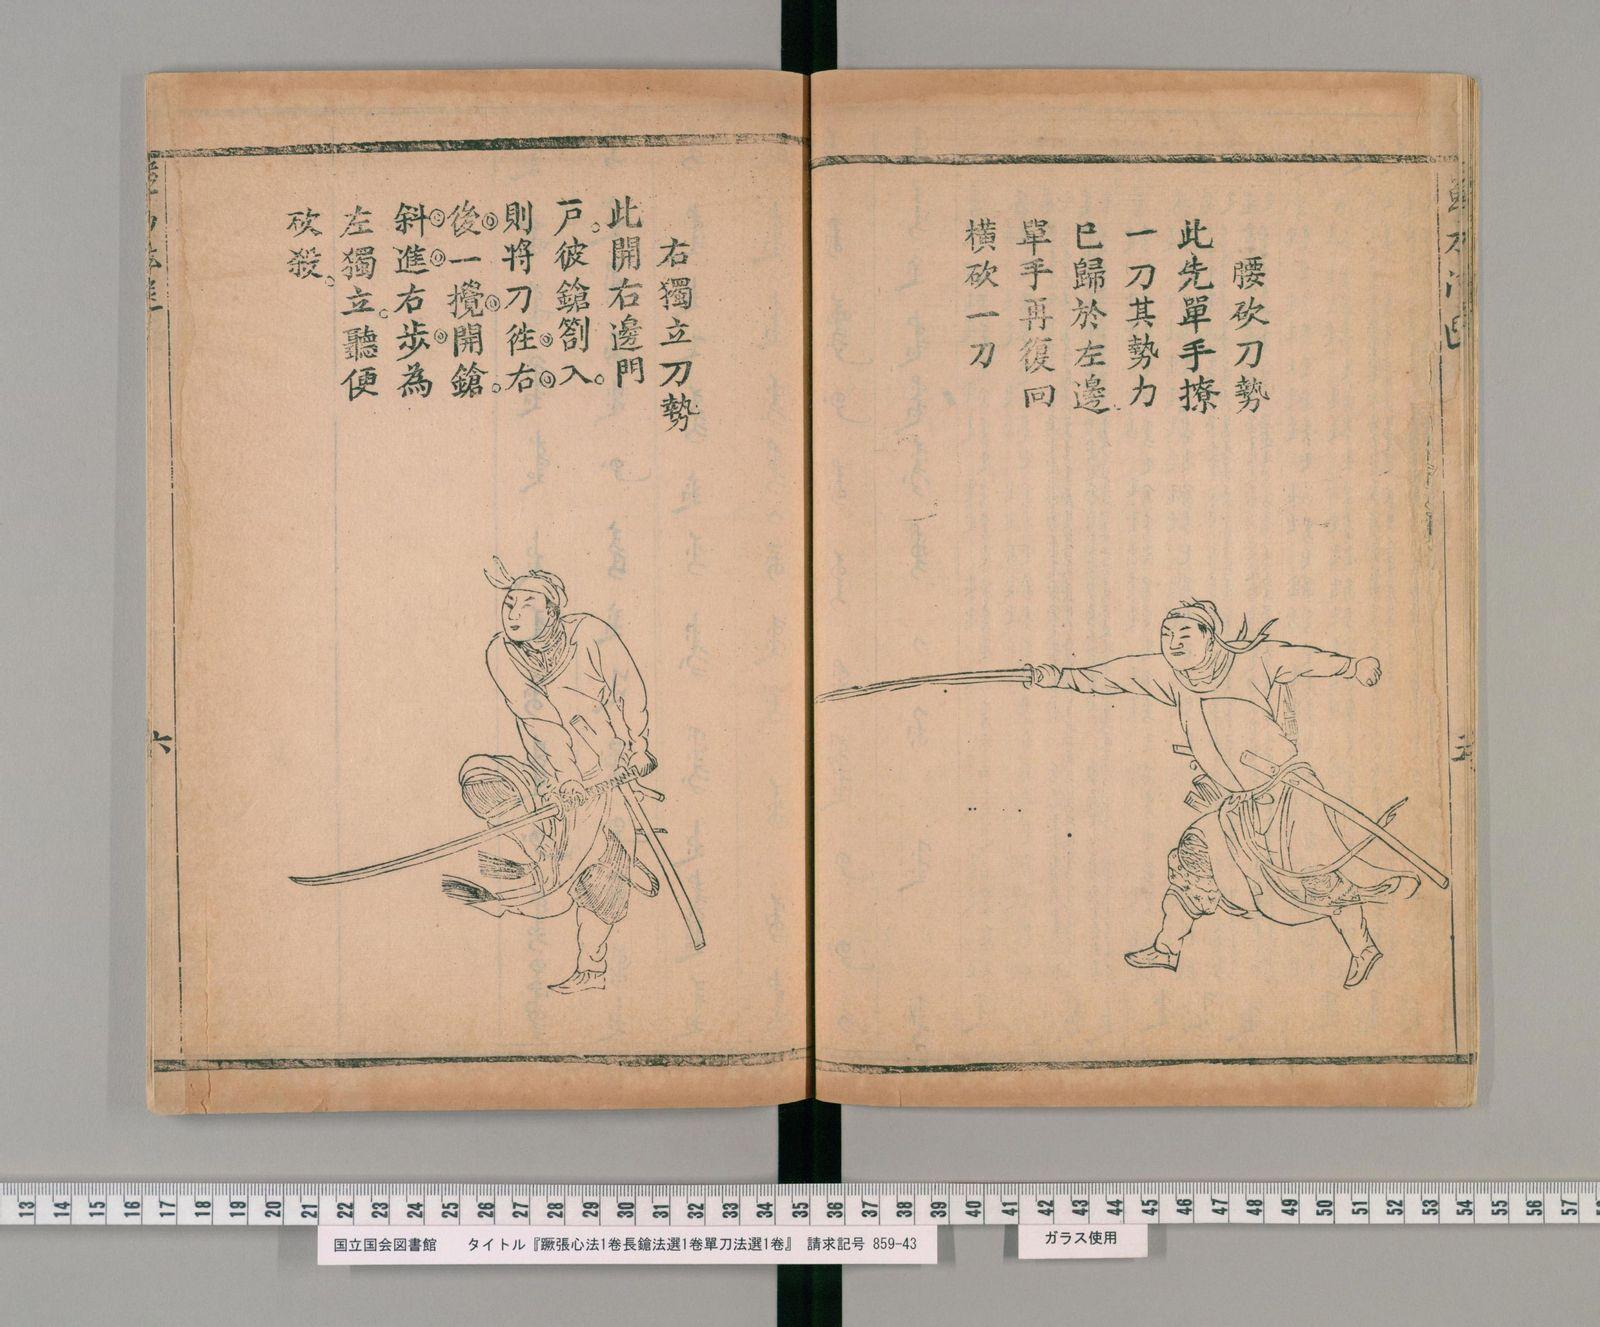 腰砍刀勢
此先單手撩
一刀其勢力
已歸於左邊
單手再復回
橫砍一刀
右獨立刀勢
此開右邊門
戸。彼鎗劄入。
則將刀徃右
後一攪開鎗。
斜進右步為
左獨立。聽便
砍殺。
六
13 14 15 16 17 18 19 20 21 22 23 24 25 26 27 28 29 30 31 32 33 34 35 36 37 38 39 40 41 42 43 44 45 46 47 48 49 50 51 52 53 54 55 56 57
国立国会図書館 タイトル『蹶張心法1巻長鎗法選1巻單刀法選1巻』 請求記号 859-43
ガラス使用